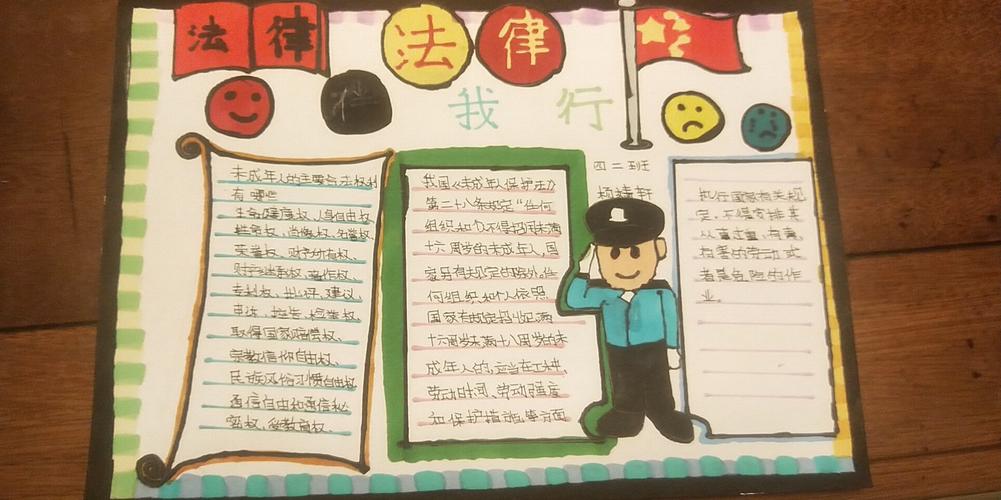 法律
法律
我行
四二班
未成年人的主要合法权利
有哪些
生命健康权、人身自由权
姓名权、肖像权、名誉权、
荣誉权、财产所有权、
财产继承权、著作权、
专利权、批评、建议、
申诉、控告、检举权、
取得国家赔偿权、
宗教信仰自由权、
民族风俗习惯自由权
通信自由和通信秘
密权、受教育权.
我国《未成年人保护法》
第二十八条规定“任何
组织和个不得招用未满
十六周岁的未成年人,国
家另有规定的除外,任
何组织和个人依照
国家有规定招收满
十六周岁未满十八周岁的未
成年人的,应当在工种、
劳动时间、劳动强度
和保护措施等方面
执行国家有关规
定,不得安排其
从事过重、有毒、
有害的劳动或
者是危险的作
业。